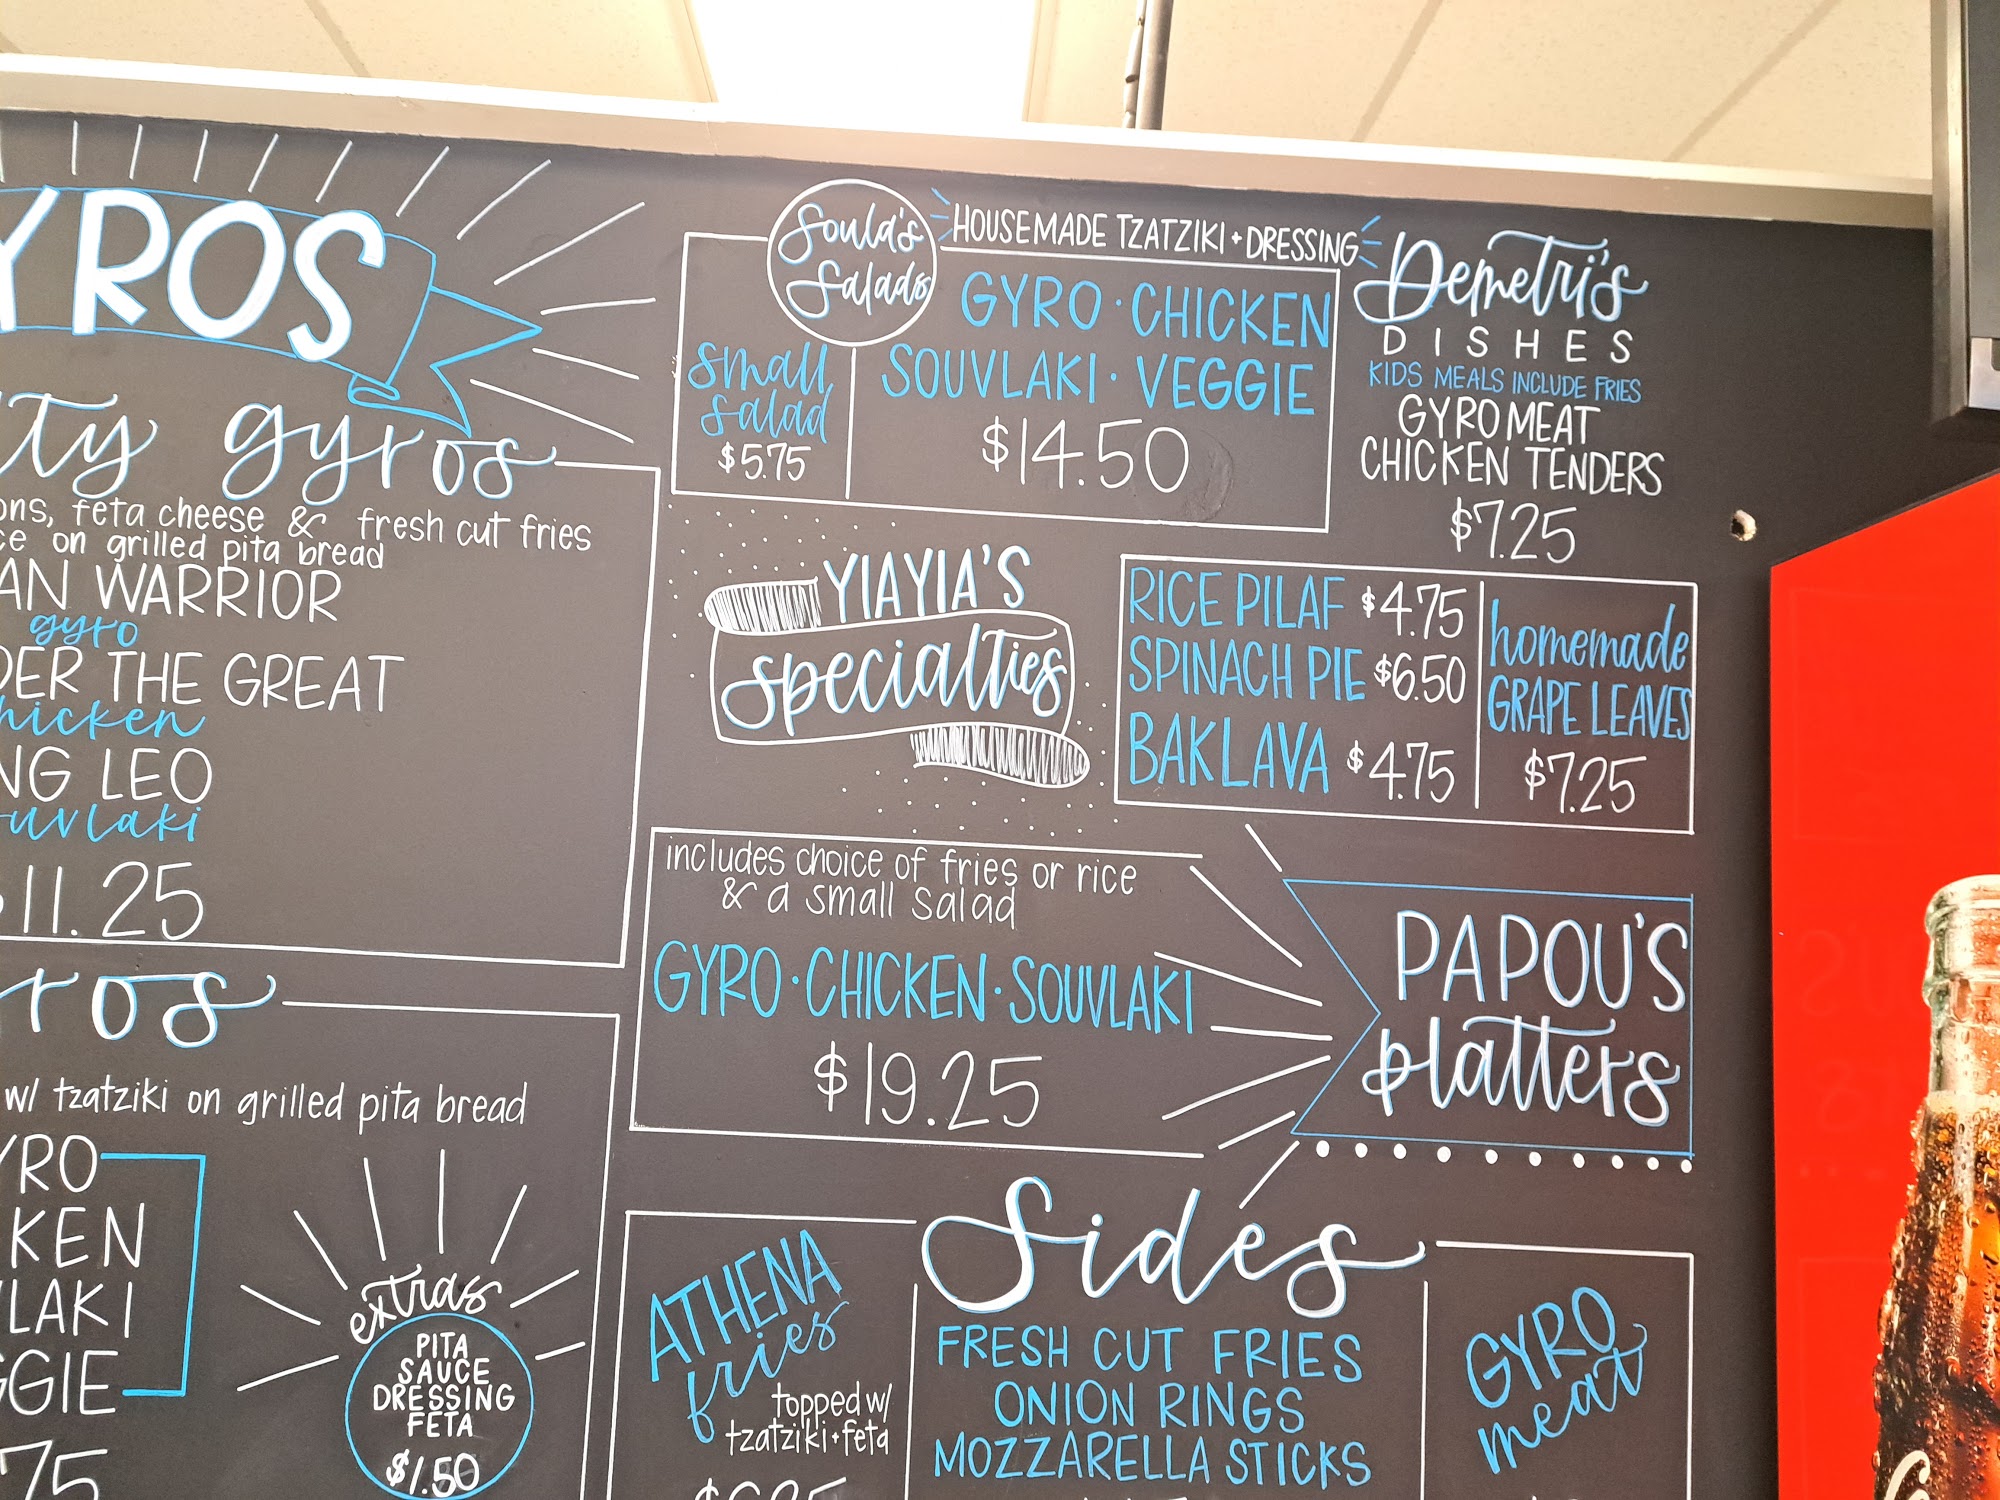 YROS
ty gyros
ons, feta cheese & fresh cut fries
ce on grilled pita bread
AN WARRIOR
gyro
DER THE GREAT
hicken
NG LEO
uvlaki
11.25
ros
w/ tzatziki on grilled pita bread
YRO
KEN
LAKI
GGIE
75
extras
PITA
SAUCE
DRESSING
FETA
$1.50
Soula's
Salads
HOUSEMADE TZATZIKI + DRESSING
small
salad
$5.75
GYRO · CHICKEN
SOUVLAKI · VEGGIE
$14.50
Demetri's
DISHES
KIDS MEALS INCLUDE FRIES
GYRO MEAT
CHICKEN TENDERS
$7.25
YIAYIA'S
specialties
RICE PILAF $4.75
SPINACH PIE $6.50
BAKLAVA $4.75
homemade
GRAPE LEAVES
$7.25
includes choice of fries or rice
& a small salad
GYRO · CHICKEN · SOUVLAKI
$19.25
PAPOU'S
platters
Sides
ATHENA
fries
topped w/
tzatziki + feta
FRESH CUT FRIES
ONION RINGS
MOZZARELLA STICKS
GYRO
meat